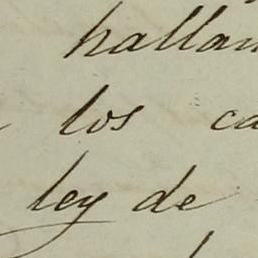 hallan
los ca
ley de